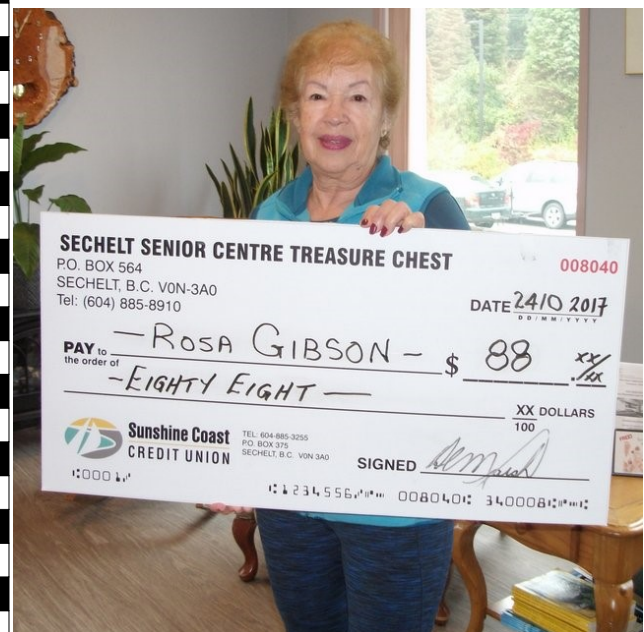 SECHELT SENIOR CENTRE TREASURE CHEST
P.O. BOX 564
008040
SECHELT, B.C. V0N-3A0
Tel: (604) 885-8910
DATE 24/0 2017
DD/MM/YYYY
PAY to the order of
—ROSA GIBSON— $ 88 .xx/xx
-EIGHTY EIGHT—
XX/100 DOLLARS
Sunshine Coast
CREDIT UNION
TEL: 604-885-3255
P.O. BOX 375
SECHELT, B.C. V0N 3A0
SIGNED